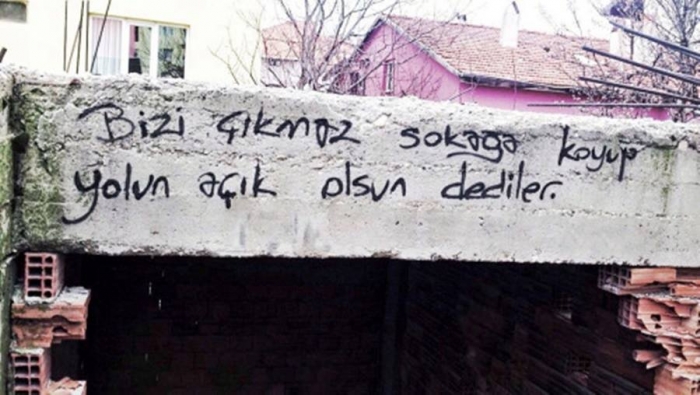 Bizi çıkmaz sokağa koyup
yolun açık olsun dediler.